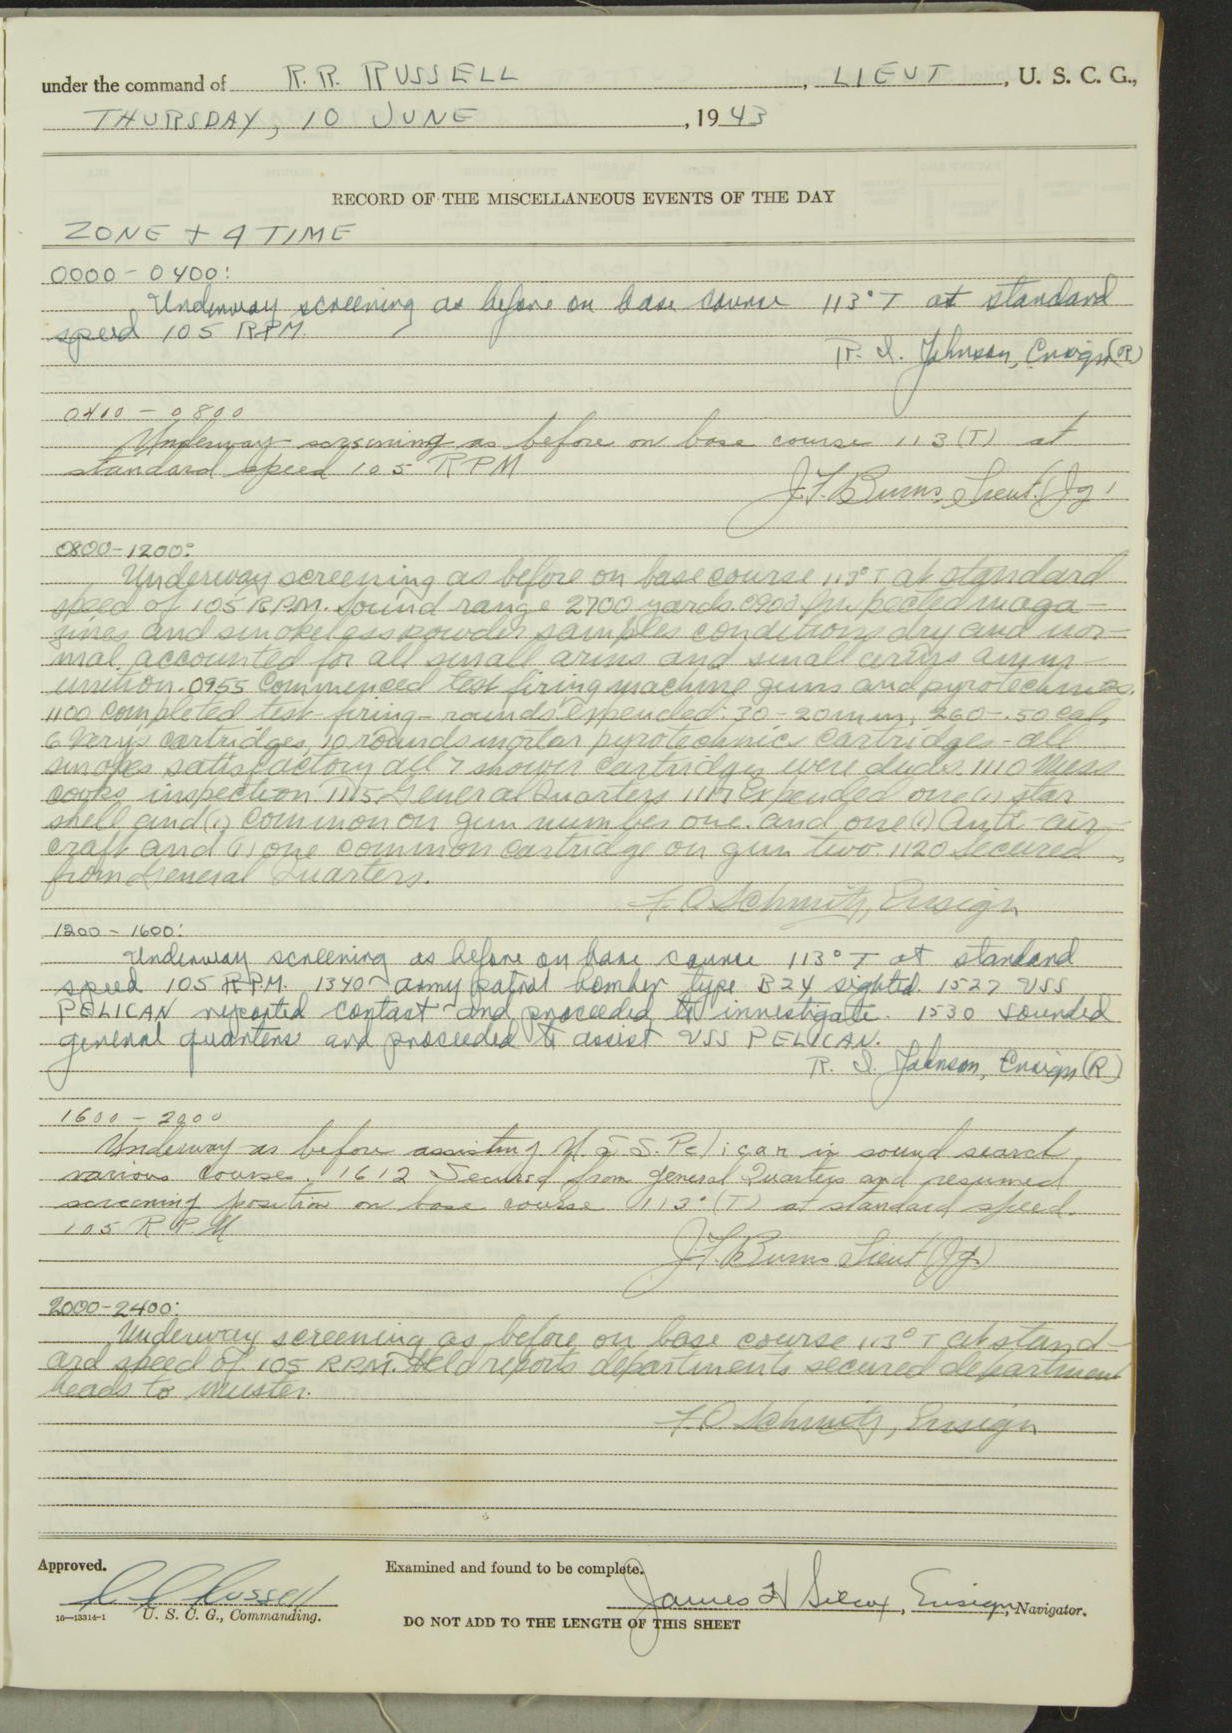 under the command of R. R. RUSSELL, LIEUT, U. S. C. G.,
THURSDAY, 10 JUNE, 1943
RECORD OF THE MISCELLANEOUS EVENTS OF THE DAY
ZONE + 4 TIME
0000 - 0400:
Underway screening as before on base course 113° T at standard
speed 105 RPM.
R. I. Johnson, Ensign (R)
0400 - 0800
Underway screening as before on base course 113 (T) at
standard speed 105 RPM
J.F. Burns, Lieut. (Jg)
0800-1200:
Underway screening as before on base course 113° T at standard
speed of 105 R.P.M. Sound range 2700 yards. 0900 Inspected maga-
zines and smokeless powder samples conditions dry and nor-
mal, accounted for all small arms and small arms amm-
unition. 0955 Commenced test firing machine guns and pyrotechnics.
1100 Completed test firing - rounds expended: 30 - 20 mm, 260 - .50 cal,
6 Very's cartridges, 10 rounds mortar pyrotechnic cartridges - all
smokes satisfactory all 7 shower cartridges were duds. 1110 Mess
cooks inspection 1115 General Quarters 1117 Expended one (1) star
shell and (1) common on gun number one. and one (1) Anti air-
craft and (1) one common cartridge on gun two. 1120 Secured
from General Quarters.
F. O. Schmitz, Ensign
1200 - 1600:
Underway screening as before on base course 113° T at standard
speed 105 R.P.M. 1340 - army patrol bomber type B24 sighted. 1527 USS
PELICAN reported contact - and proceeded to investigate. 1530 sounded
general quarters and proceeded to assist USS PELICAN.
R. I. Johnson, Ensign (R)
1600 - 2000
Underway as before assisting U.S.S. Pelican in sound search,
various courses. 1612 Secured from general Quarters and resumed
screening position on base course 113° (T) at standard speed.
105 R P M
J.F. Burns Lieut (Jg)
2000-2400:
Underway screening as before on base course 113° T at stand-
ard speed of 105 R.P.M. Held reports departments secured department
heads to muster.
F. O. Schmitz, Ensign
Approved.
Examined and found to be complete.
R R Russell
James H Silcox, Ensign, Navigator.
16—13314-1 U. S. C. G., Commanding.
DO NOT ADD TO THE LENGTH OF THIS SHEET